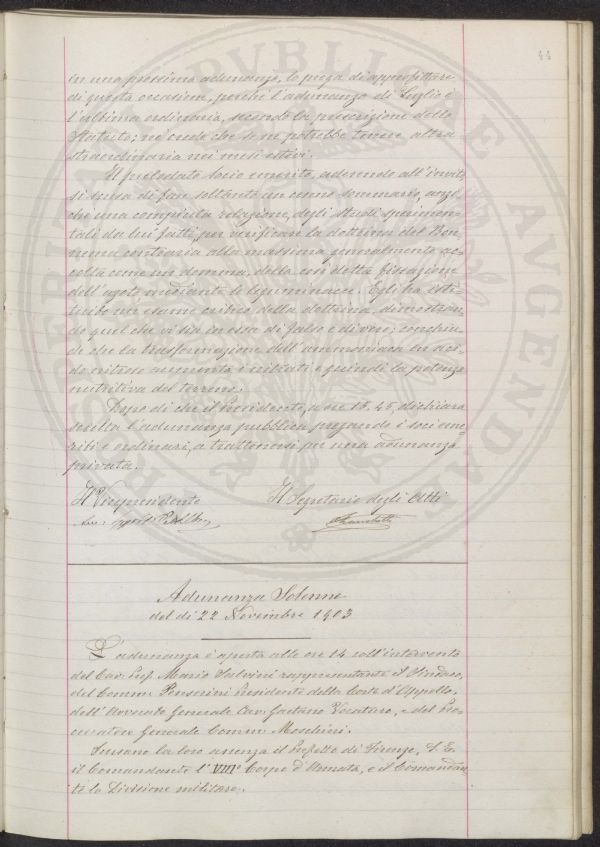 44
in una prossima adunanza, lo prega di approfittare
di questa occasione, perchè l'adunanza di Luglio è
l'ultima ordinaria, secondo la prescrizione dello
Statuto; nè crede che se ne potrebbe tenere altra
straordinaria nei mesi estivi.
Il prelodato socio emerito, aderendo all'invito
si scusa di fare soltanto un cenno sommario, anzi
che una compiuta relazione, degli studi sperimen-
tali da lui fatti, per verificare la dottrina del
contraria alla massima generalmente ac-
colta come un domma, della così detta fissazione
dell'azoto mediante le leguminacee. Egli ha isti-
tuito un esame critico della dottrina, dimostran-
do quel che vi sia in essa di falso e di vero; conchiu-
de che la trasformazione dell'ammoniaca in aci-
do nitroso augmenta i nitrati e quindi la potenza
nutritiva del terreno.
Dopo di che il Presidente, a ore 15.45, dichiara
sciolta l'adunanza pubblica pregando i soci eme-
riti e ordinari, a trattenersi per una adunanza
privata.
Il Vicepresidente Il Segretario degli Atti
Adunanza Solenne
del dì 22 Novembre 1903
L'adunanza è aperta alle ore 14 coll'intervento
del Cav. Prof. Mario Salvini rappresentante il Sindaco,
del Comm. Penserini Presidente della Corte d'Appello,
dell'Avvocato Generale Cav. Gaetano Vocaturo, e del Pro-
curatore Generale Comm. Moschini.
Scusano la loro assenza il Prefetto di Firenze, S. Ec.
il Comandante l'VIII° Corpo d'Armata, e il Comandan-
te la Divisione militare.
REI PVBLICAE AVGENDAE